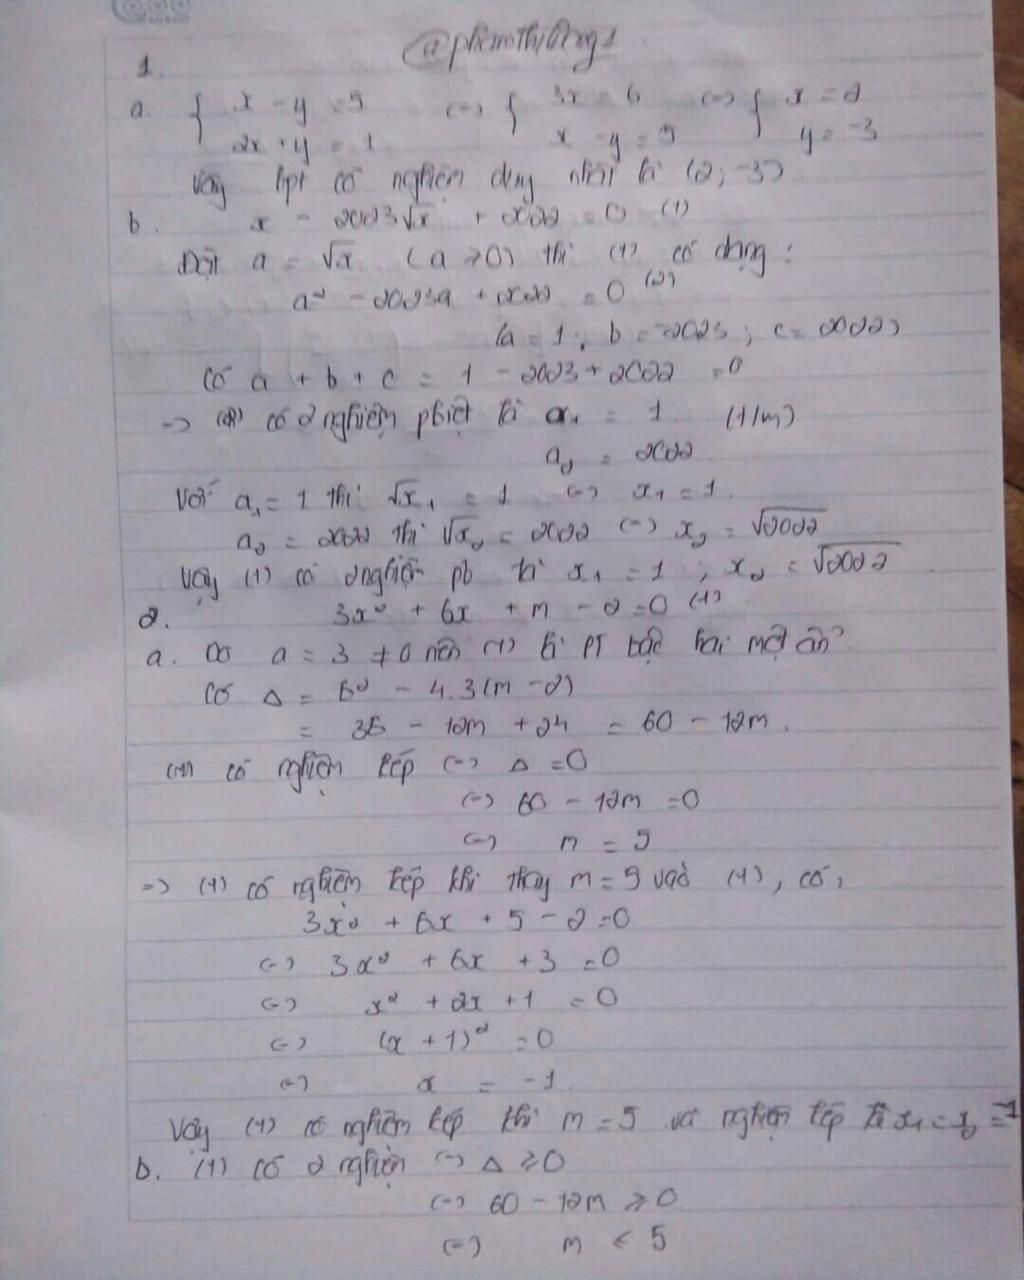 @phamthidung1
1.
a. { x - y = 5 (=) { 3x = 6 (=) { x = 2
2x + y = 1 x - y = 5 y = -3
Vậy hpt có nghiệm duy nhất là (2; -3)
b. x - 2023√x + 2022 = 0 (1)
Đặt a = √x (a ≥ 0) thì (1) có dạng :
a² - 2023a + 2022 = 0 (2)
(a = 1; b = -2023; c = 2022)
Có a + b + c = 1 - 2023 + 2022 = 0
=> (2) có 2 nghiệm pbiệt là a₁ = 1 (t/m)
a₂ = 2022
Với a₁ = 1 thì √x₁ = 1 (=) x₁ = 1.
a₂ = 2022 thì √x₂ = 2022 (=) x₂ = √2022
Vậy (1) có 2 nghiệm pb là x₁ = 1 ; x₂ = √2022
2. 3x² + 6x + m - 2 = 0 (1)
a. Do a = 3 ≠ 0 nên (1) là PT bậc hai một ẩn
Có Δ = 6² - 4.3(m - 2)
= 36 - 12m + 24 = 60 - 12m.
(1) có nghiệm kép (=) Δ = 0
(=) 60 - 12m = 0
(=) m = 5
=> (1) có nghiệm kép khi thay m = 5 vào (1), có:
3x² + 6x + 5 - 2 = 0
(=) 3x² + 6x + 3 = 0
(=) x² + 2x + 1 = 0
(=) (x + 1)² = 0
(=) x = -1.
Vậy (1) có nghiệm kép khi m = 5 và nghiệm kép là x₁ = x₂ = -1
b. (1) có 2 nghiệm (=) Δ ≥ 0
(=) 60 - 12m ≥ 0
(=) m < 5